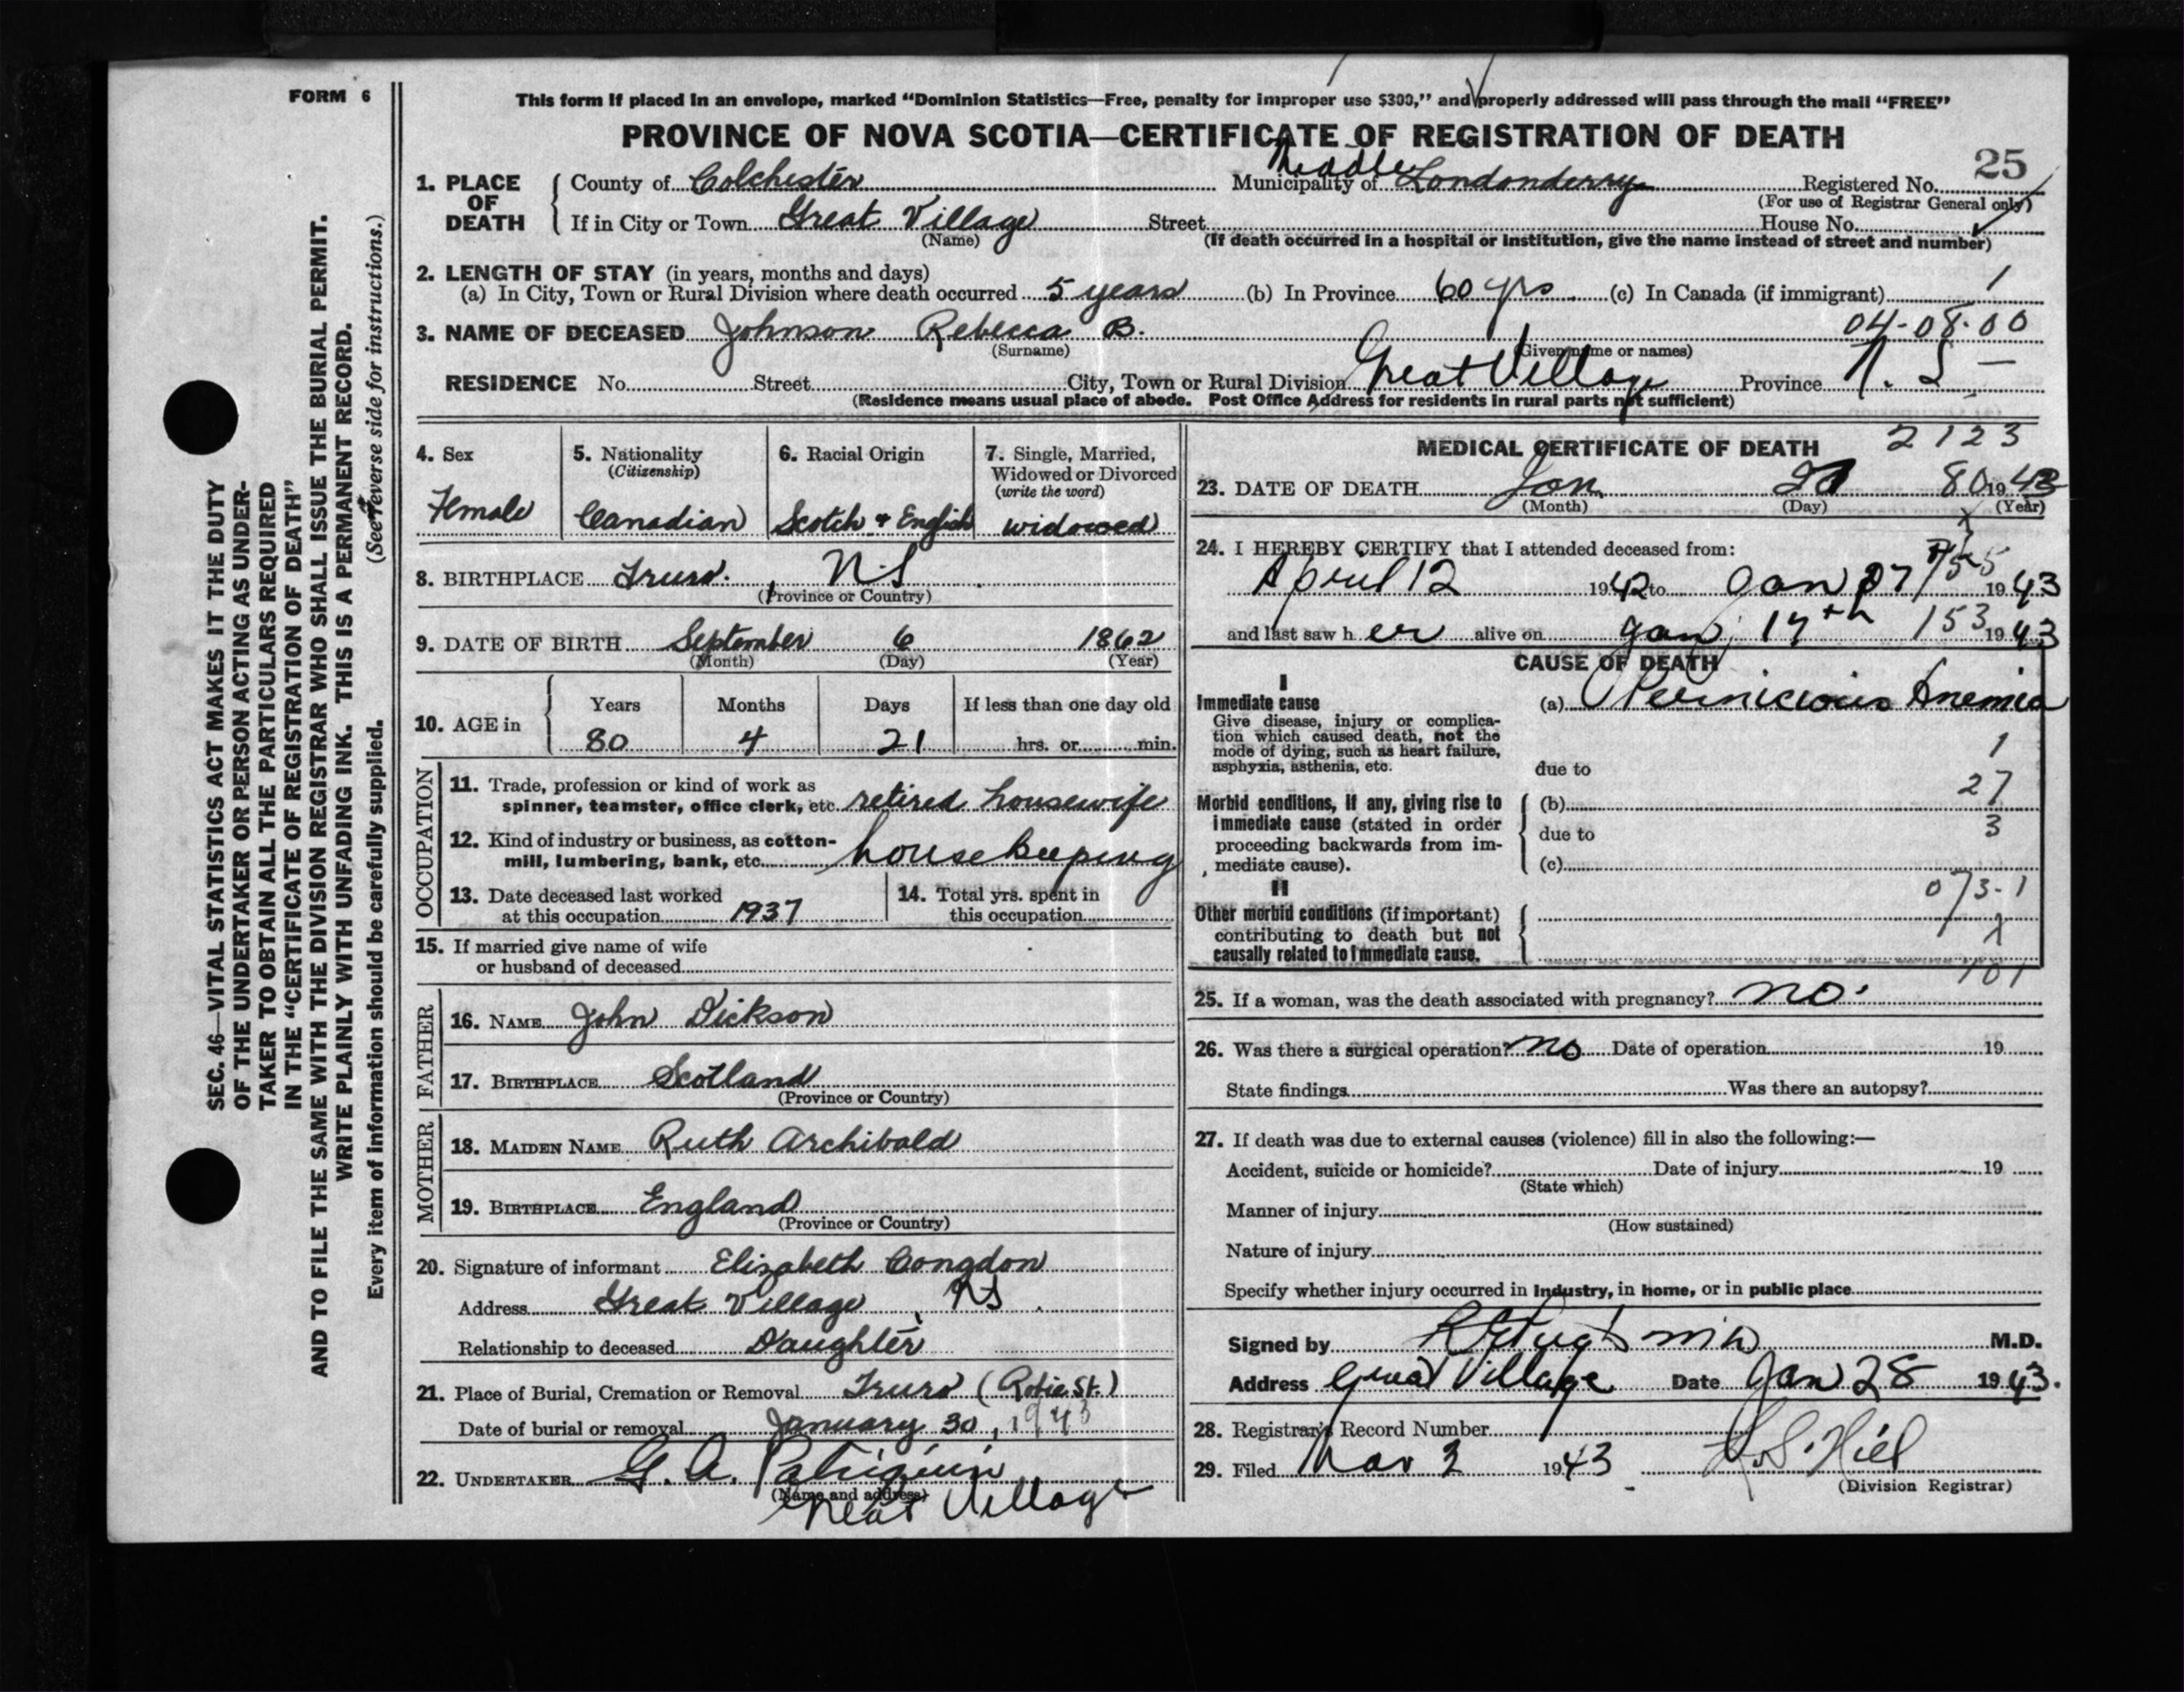 FORM 6
This form if placed in an envelope, marked “Dominion Statistics—Free, penalty for improper use $300,” and properly addressed will pass through the mail “FREE”
PROVINCE OF NOVA SCOTIA—CERTIFICATE OF REGISTRATION OF DEATH
25
1. PLACE OF DEATH County of Colchester Municipality of Middle Londonderry Registered No.
(For use of Registrar General only)
If in City or Town Great Village Street House No.
(Name) (If death occurred in a hospital or institution, give the name instead of street and number)
2. LENGTH OF STAY (in years, months and days)
(a) In City, Town or Rural Division where death occurred 5 years (b) In Province 60 yrs (c) In Canada (if immigrant) 1
3. NAME OF DECEASED Johnson Rebecca B. 04-08-00
(Surname) (Given name or names)
RESIDENCE No. Street City, Town or Rural Division Great Village Province N. S —
(Residence means usual place of abode. Post Office Address for residents in rural parts not sufficient)
4. Sex
Female
5. Nationality
(Citizenship)
Canadian
6. Racial Origin
Scotch + English
7. Single, Married,
Widowed or Divorced
(write the word)
widowed
8. BIRTHPLACE Truro, N.S.
(Province or Country)
9. DATE OF BIRTH September 6 1862
(Month) (Day) (Year)
10. AGE in
Years Months Days If less than one day old
80 4 21 hrs. or min.
OCCUPATION
11. Trade, profession or kind of work as
spinner, teamster, office clerk, etc. retired housewife
12. Kind of industry or business, as cotton-
mill, lumbering, bank, etc. housekeeping
13. Date deceased last worked
at this occupation 1937
14. Total yrs. spent in
this occupation
15. If married give name of wife
or husband of deceased
FATHER
16. NAME John Dickson
17. BIRTHPLACE Scotland
(Province or Country)
MOTHER
18. MAIDEN NAME Ruth Archibald
19. BIRTHPLACE England
(Province or Country)
20. Signature of informant Elizabeth Congdon
Address Great Village, NS.
Relationship to deceased Daughter
21. Place of Burial, Cremation or Removal Truro (Robie St.)
Date of burial or removal January 30, 1943
22. UNDERTAKER G. A. Patriquin
(Name and address)
Great Village
MEDICAL CERTIFICATE OF DEATH 2123
23. DATE OF DEATH Jan 80 1943
(Month) (Day) (Year)
24. I HEREBY CERTIFY that I attended deceased from:
April 12 1942 to Jan 27 1943
and last saw her alive on Jan 17th 153 1943
CAUSE OF DEATH
I
Immediate cause
Give disease, injury or complica-
tion which caused death, not the
mode of dying, such as heart failure,
asphyxia, asthenia, etc.
(a) Pernicious Anemia
1
due to
27
Morbid conditions, if any, giving rise to
immediate cause (stated in order
proceeding backwards from im-
mediate cause).
(b)
due to 3
(c)
II
073-1
Other morbid conditions (if important)
contributing to death but not
causally related to immediate cause.
101
25. If a woman, was the death associated with pregnancy? no.
26. Was there a surgical operation? no Date of operation 19
State findings Was there an autopsy?
27. If death was due to external causes (violence) fill in also the following:—
Accident, suicide or homicide? Date of injury 19
(State which)
Manner of injury
(How sustained)
Nature of injury
Specify whether injury occurred in industry, in home, or in public place
Signed by M.D.
Address Great Village Date Jan 28 1943.
28. Registrar's Record Number
29. Filed Mar 2 1943 Hill
(Division Registrar)
SEC. 46—VITAL STATISTICS ACT MAKES IT THE DUTY
OF THE UNDERTAKER OR PERSON ACTING AS UNDER-
TAKER TO OBTAIN ALL THE PARTICULARS REQUIRED
IN THE “CERTIFICATE OF REGISTRATION OF DEATH”
AND TO FILE THE SAME WITH THE DIVISION REGISTRAR WHO SHALL ISSUE THE BURIAL PERMIT.
WRITE PLAINLY WITH UNFADING INK. THIS IS A PERMANENT RECORD.
Every item of information should be carefully supplied. (See reverse side for instructions.)